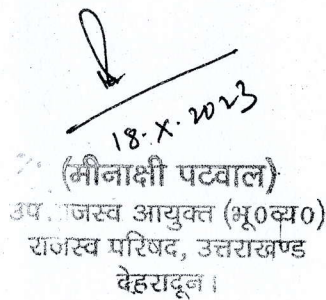 18.X.2023
(मीनाक्षी पटवाल)
उप राजस्व आयुक्त (भू०व्य०)
राजस्व परिषद, उत्तराखण्ड
देहरादून।